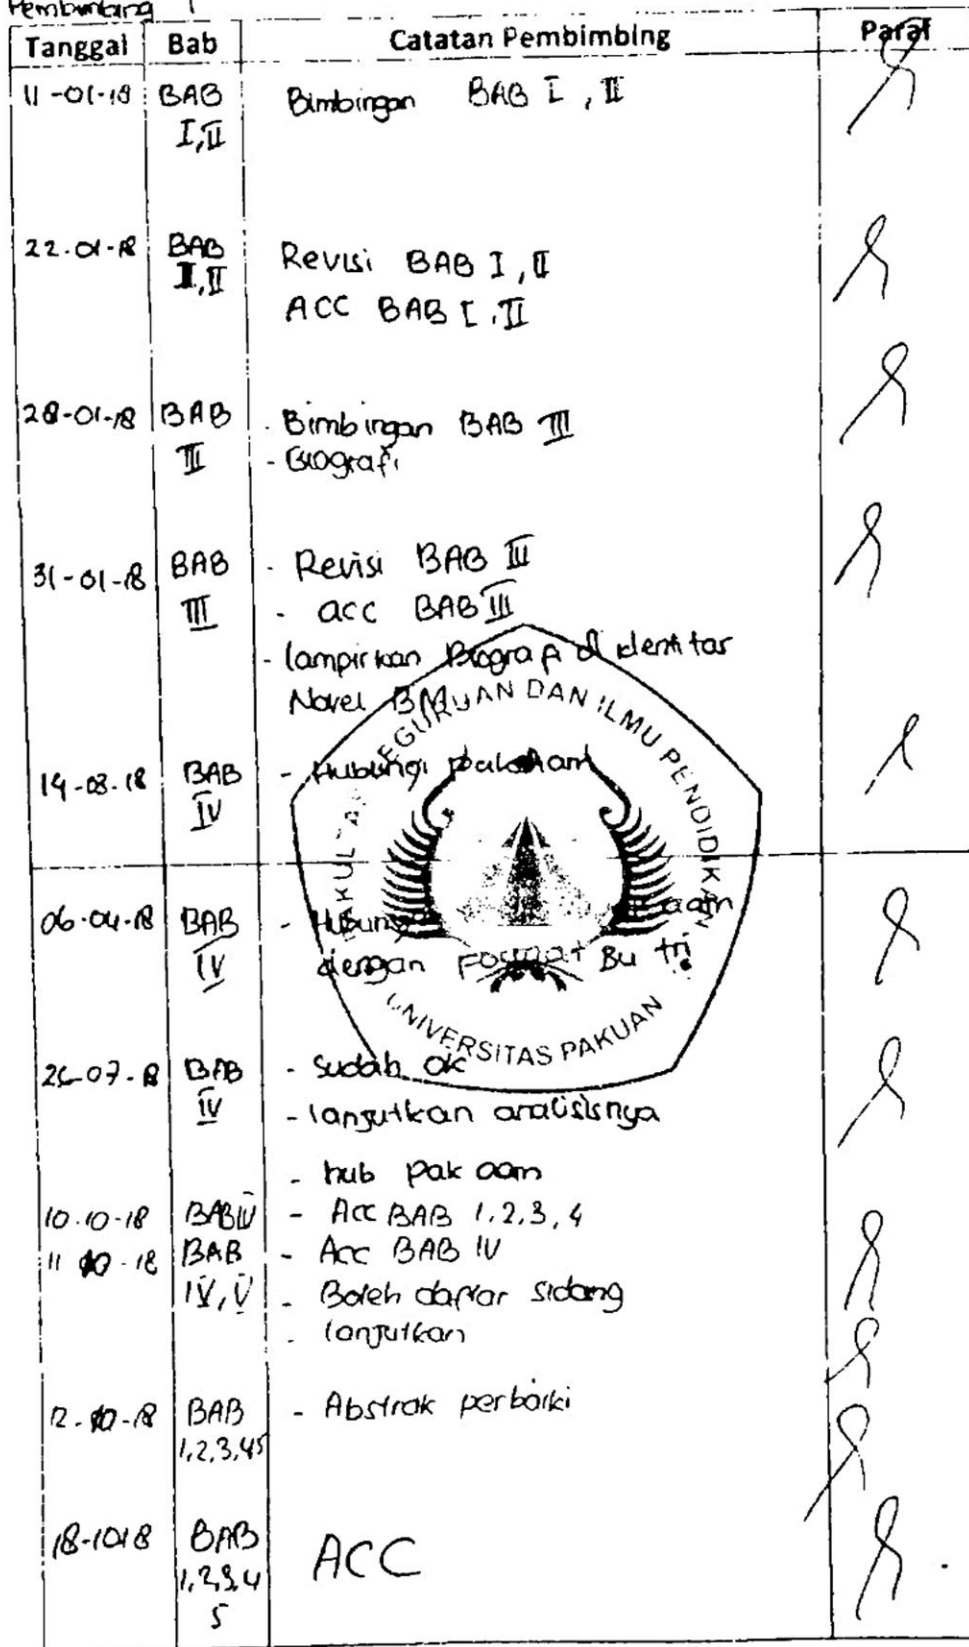 Pembimbing I
Tanggal Bab Catatan Pembimbing Paraf
11-01-18 BAB Bimbingan BAB I, II
I, II
22-01-18 BAB Revisi BAB I, II
I, II ACC BAB I, II
28-01-18 BAB - Bimbingan BAB III
III - Biografi
31-01-18 BAB - Revisi BAB III
III - acc BAB III
- lampirkan Biografi di identitas
Novel
14-03-18 BAB - Hubungi
IV
06-04-18 BAB - aam
IV dengan Format Bu tri
07-18 BAB - sudah ok
IV - lanjutkan analisisnya
- hub pak aam
10-10-18 BAB IV - Acc BAB 1,2,3,4
11-10-18 BAB - Acc BAB IV
IV, V - Boleh daftar sidang
- lanjutkan
12-10-18 BAB - Abstrak perbaiki
1,2,3,4,5
18-10-18 BAB ACC
1,2,3,4
5
FAKULTAS KEGURUAN DAN ILMU PENDIDIKAN
UNIVERSITAS PAKUAN